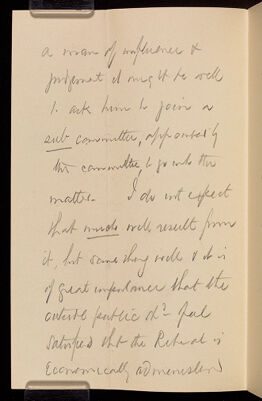 a man of influence &
judgement it might be well
to ask him to join a
sub committee, appointed by
the committee, to go into the
matter. I do not expect
that much will result from
it, but something will & it is
of great importance that the
outside public shd feel
satisfied that the Retreat is
Economically administered